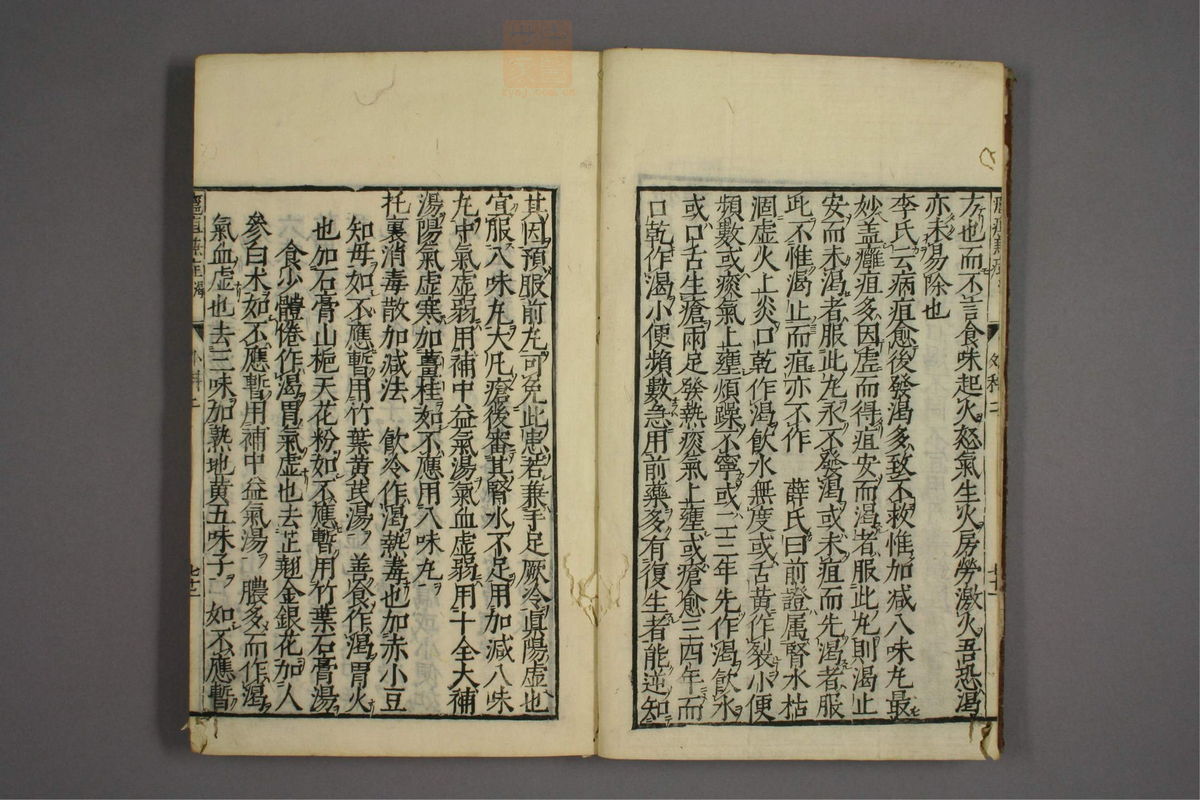 方也而不言食味起火怒氣生火房勞激火吾恐渴
亦未易除也
李氏云病疽愈後發渴多致不救惟加减八味丸最
妙盖癰疽多因虚而得疽安而渴者服此丸則渴止
安而未渴者服此丸永不發渴或未疽而先渴者服
此不惟渴止而疽亦不作 薛氏曰前證属腎水枯
涸虚火上炎口乾作渴飲水無度或舌黄作裂小便
頻數或痰氣上壅煩躁不寧或二三年先作渴飲水
或口舌生瘡兩足發熱痰氣上壅或瘡愈三四年而
口乾作渴小便頻數急用前藥多有復生者能逆知
其因預服前丸可免此患若兼手足厥冷眞陽虚也
宜服八味丸大凡瘡後審其腎水不足用加減八味
丸中氣虚弱用補中益氣湯氣血虚弱用十全大補
湯陽氣虚寒加薑桂如不應用八味丸
托裏消毒散加減法 飲冷作渴熱毒也加赤小豆
知母如不應暫用竹葉黄芪湯 善食作渴胃火
也加石膏山梔天花粉如不應暫用竹葉石膏湯
食少體倦作渴胃氣虚也去芷翹金銀花加人
參白术如不應暫用補中益氣湯 膿多而作渴
氣血虚也去三味加熟地黄五味子 如不應暫
外科二